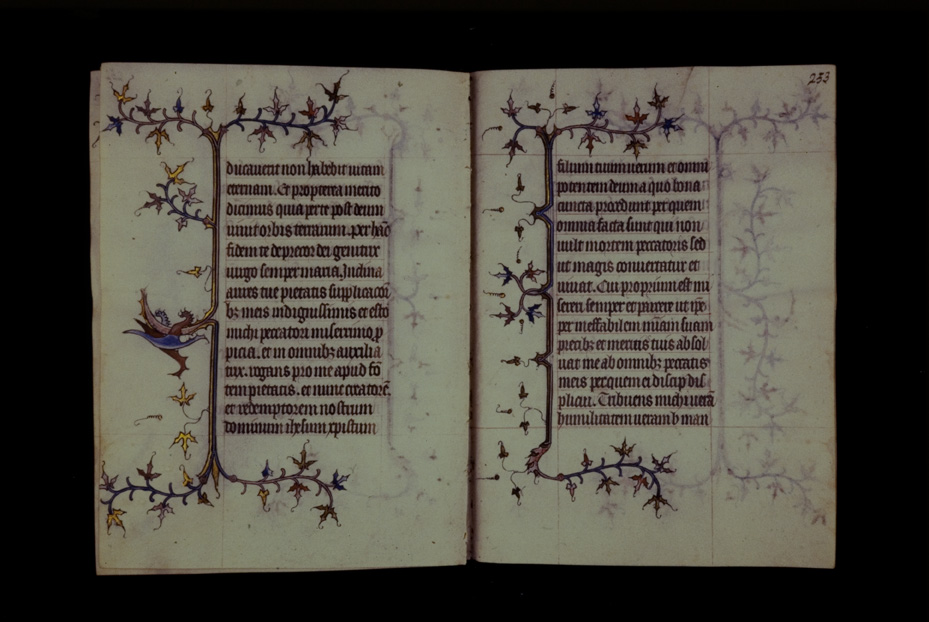 ducauerit non habebit uitam
eternam. Et propterea merito
dicimus quia per te post deum
uiuit orbis terrarum. per hāc
fidem te deprecor dei genitrix
uirgo semper maria. Inclina
aures tue pietatis supplicacōi
bꝫ meis indignissimis et esto
michi peccatori miserrimo ꝓ
picia. et in omnibꝫ auxilia
trix. rogans pro me apud fō
tem pietatis. et nunc creatorē.
et redemptorem nostrum
dominum ihesum xpistum
233
filium tuum uerum et omni
potentem deum a quo bona
cuncta procedunt per quem
omnia facta sunt qui non
uult mortem peccatoris sed
ut magis conuertatur et
uiuat. Cui proprium est mi
sereri semper et parcere ut ip̄e
per ineffabilem mīam suam
precibꝫ et meritis tuis absol
uat me ab omnibꝫ peccatis
meis per quem et discip dis
plicui. Tribuens michi uerā
humilitatem ueram h man